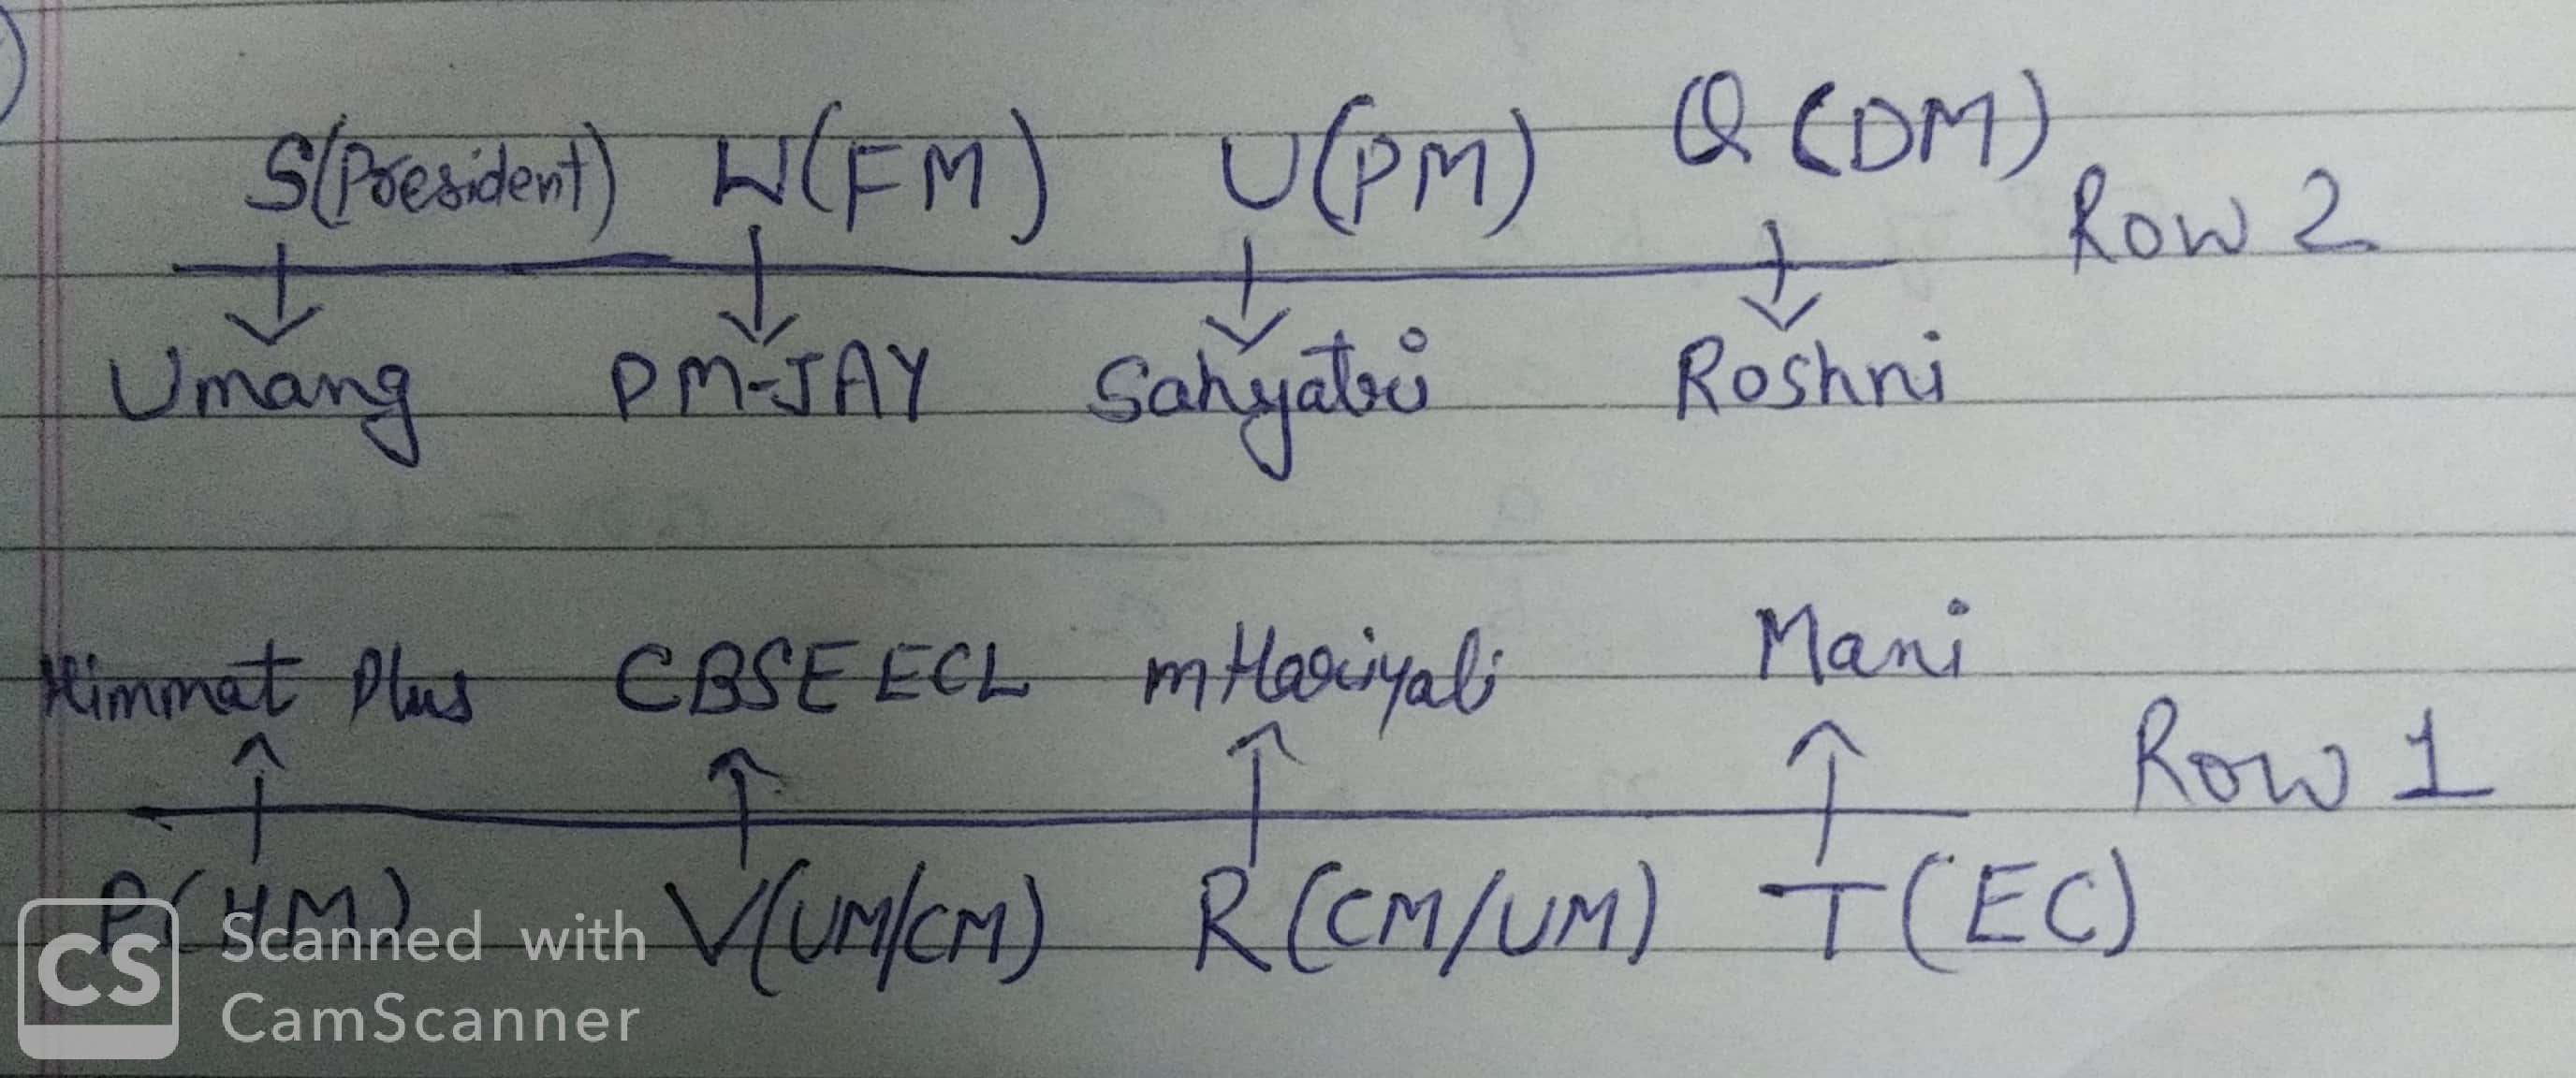 S(President) W(FM) U(PM) Q (DM)
Row 2
Umang PM-JAY Sahyatri Roshni
Himmat Plus CBSE ECL mHariyali Mani
Row 1
P(HM) V(UM/CM) R(CM/UM) T(EC)
CS Scanned with
CamScanner